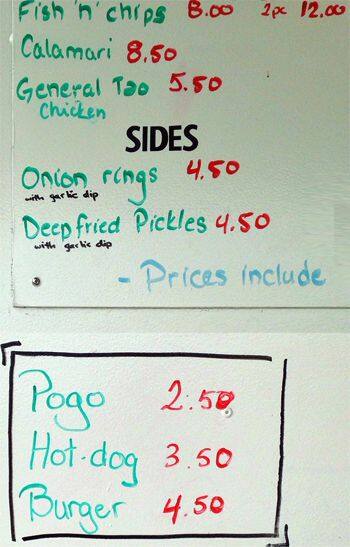 Fish 'n' chips 8.00 2pc 12.00
Calamari 8.50
General Tao 5.50
Chicken
SIDES
Onion rings 4.50
with garlic dip
Deep fried Pickles 4.50
with garlic dip
- Prices include
Pogo 2.50
Hot-dog 3.50
Burger 4.50